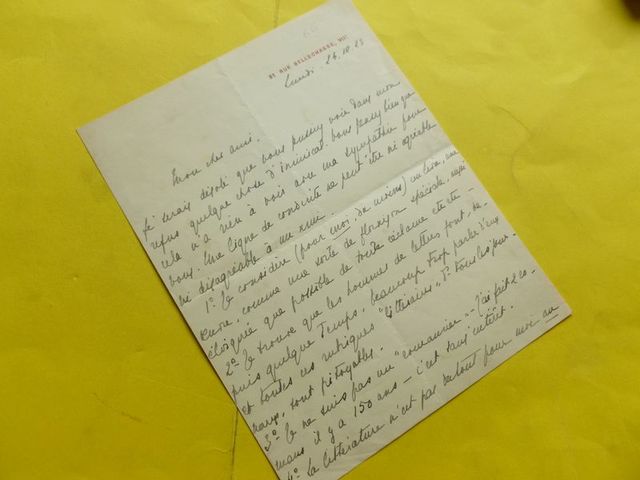 RUE BELLECHASSE, VII
Lundi 26.
Mon cher ami.
Je serais désolé que vous puissiez voir dans mon
refus quelque chose d'inamical. Vous savez bien que
cela n'a rien à voir avec ma sympathie pour
vous. Une ligne de conduite ne peut être ni agréable
ni désagréable à un ami.
1° Je considère (pour moi, du moins) un livre, une
œuvre, comme une sorte de floraison spéciale, aussi
éloignée que possible de toute réclame etc etc -
2° Je trouve que les hommes de lettres font, de-
puis quelque temps, beaucoup trop parler d'eux
et toutes ces rubriques "littéraires", de tous les jour-
naux, sont pitoyables.
3° Je ne suis pas un "romancier" - J'ai fait 2 ro-
mans il y a 150 ans - c'est sans intérêt.
4° La littérature n'est pas surtout pour moi un